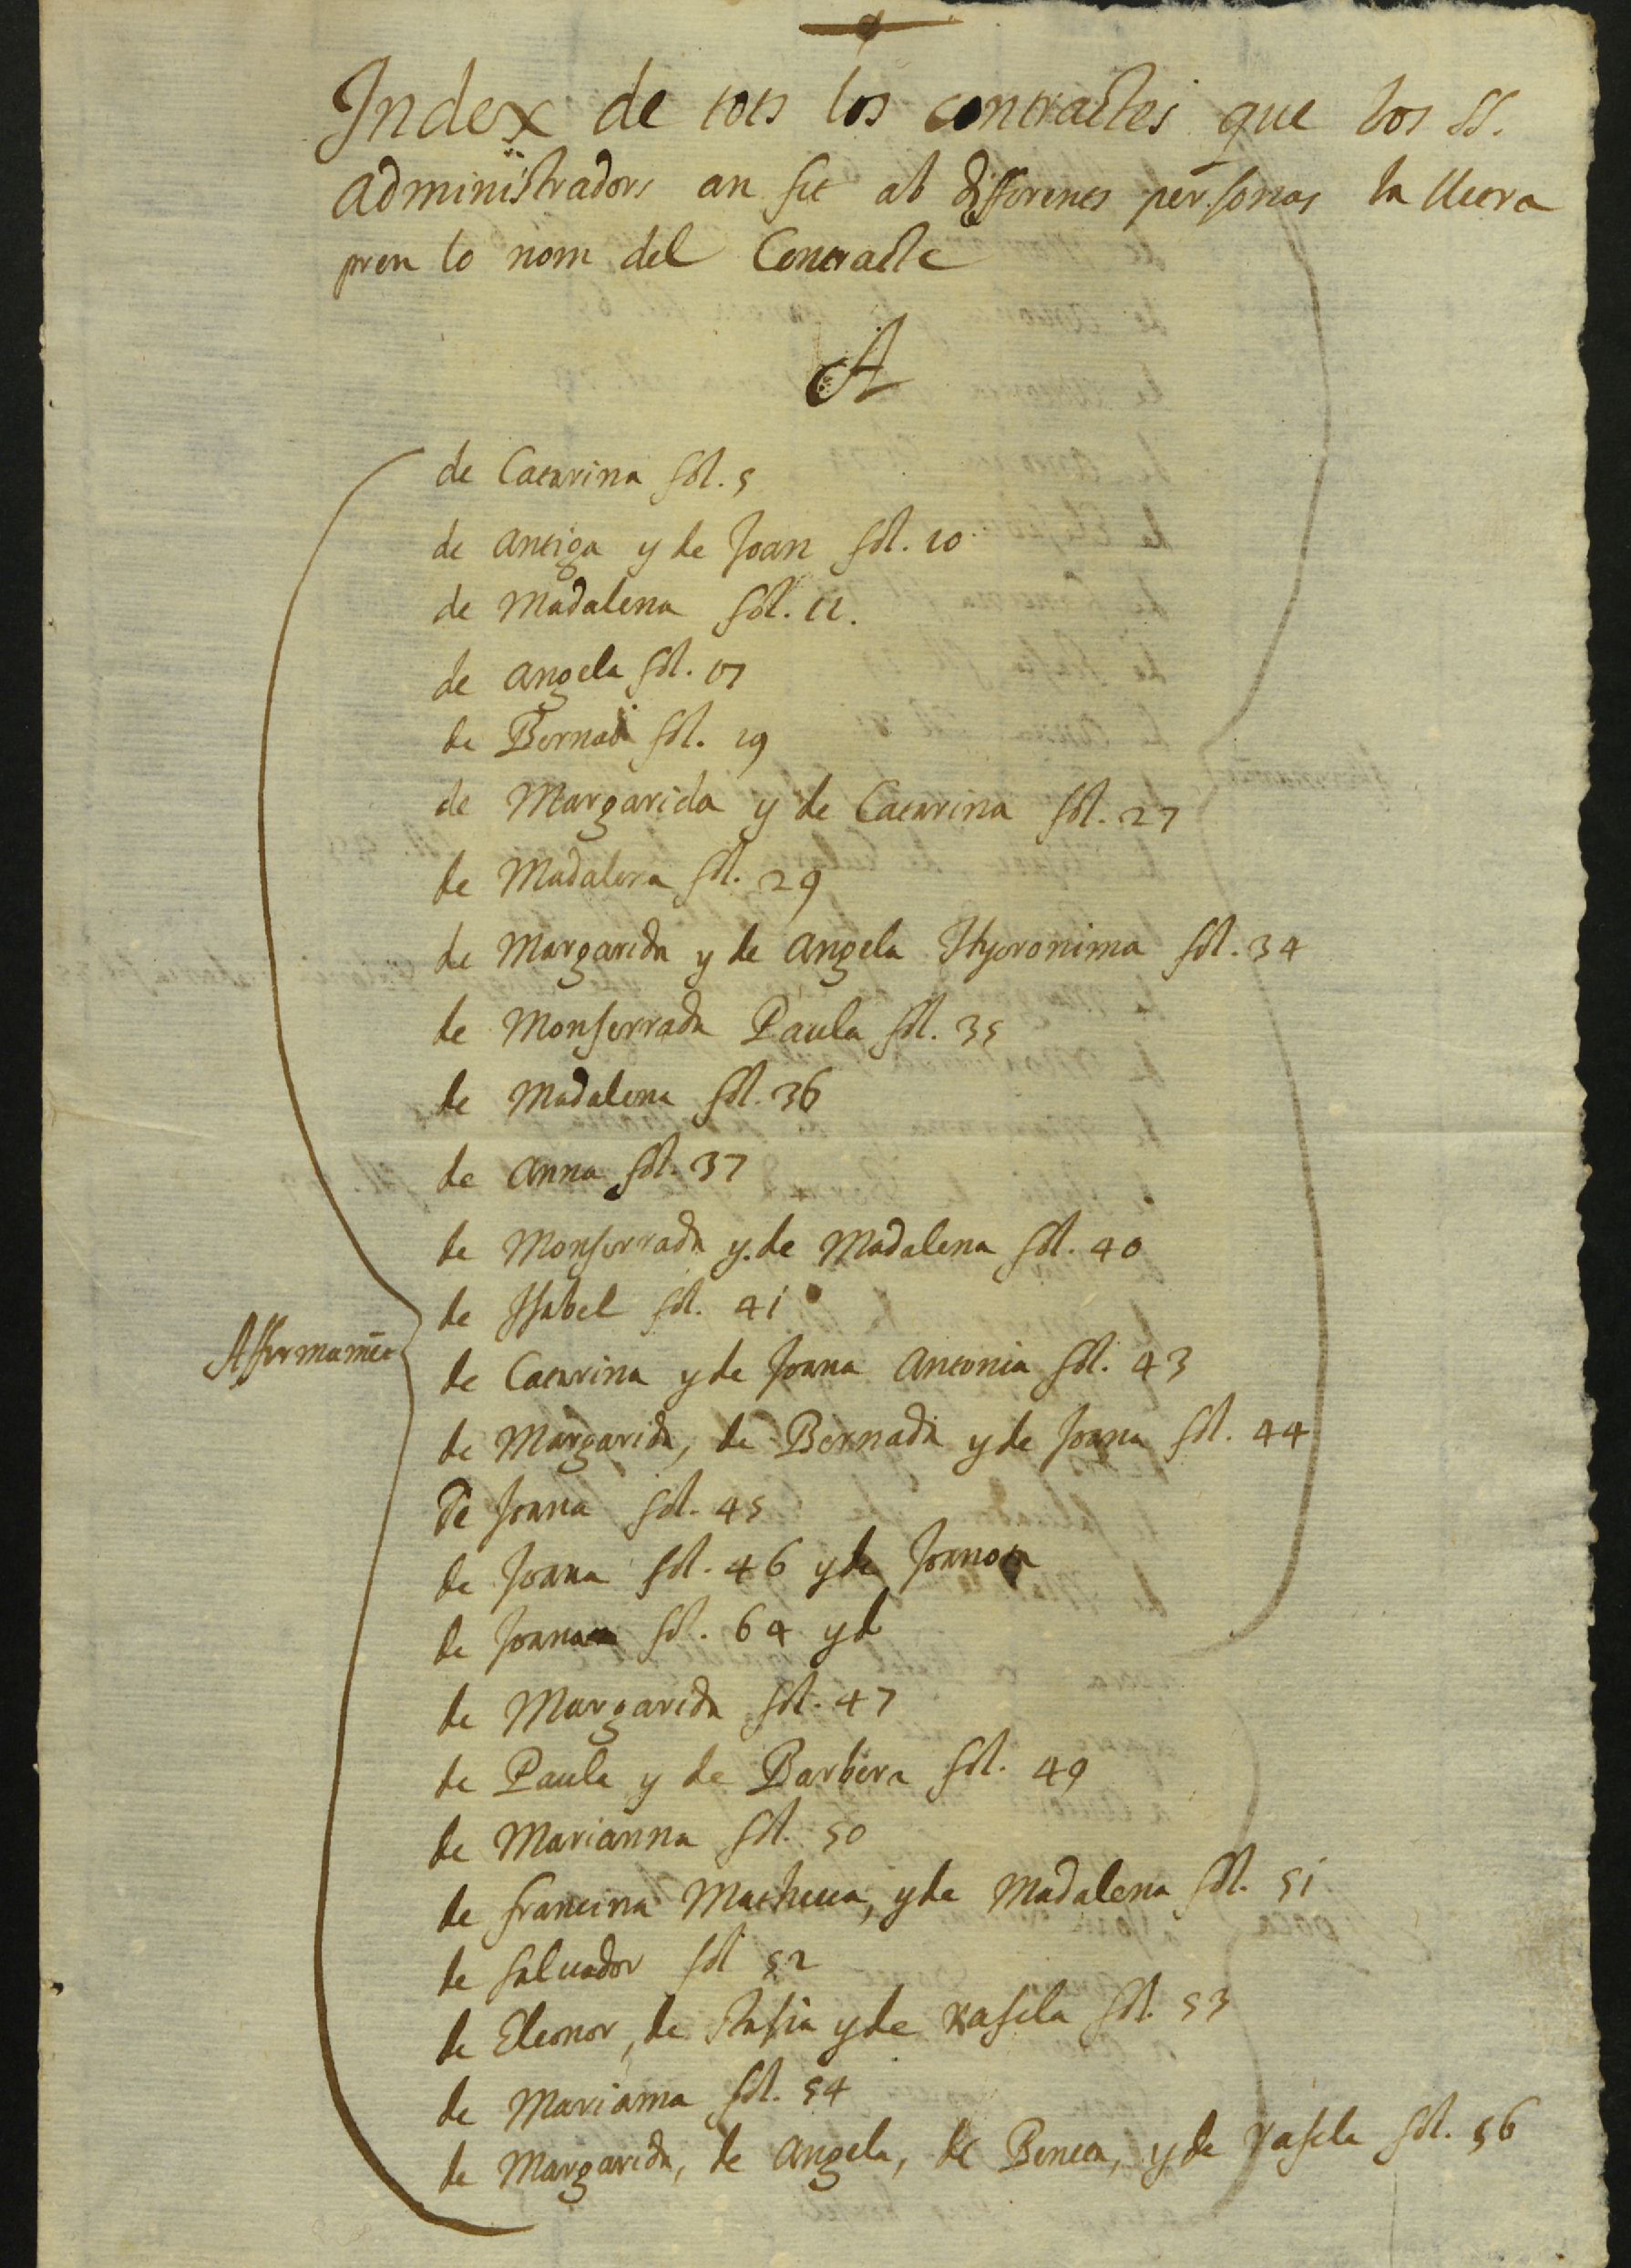 Index de tots los contractes que los SS.
Administradors an fet ab differents personas la lletra
pren lo nom del Contracte
A
de Catarina fol. 5
de Antiga y de Joan fol. 10
de Madalena fol. 11.
de Angela fol. 17
de Bernat fol. 19
de Margarida y de Catarina fol. 27
de Madalena fol. 29
de Margarida y de Angela Hyeronima fol. 34
de Monserrada Paula fol. 35
de Madalena fol. 36
de Anna fol. 37
de Monserrada y de Madalena fol. 40
de Isabel fol. 41
Affermamēt
de Catarina y de Joana Antonia fol. 43
de Margarida, de Bernada y de Joana fol. 44
De Joana fol. 45
de Joana fol. 46 y de Joanota
de Joana fol. 64 y d
de Margarida fol. 47
de Paula y de Barbera fol. 49
de Marianna fol. 50
de francina y de Madalena fol. 51
de Salvador fol 52
de Eleonor, de y de Rafela fol. 53
de Marianna fol. 54
de Margarida, de Angela, de Beneta, y de Rafela fol. 56